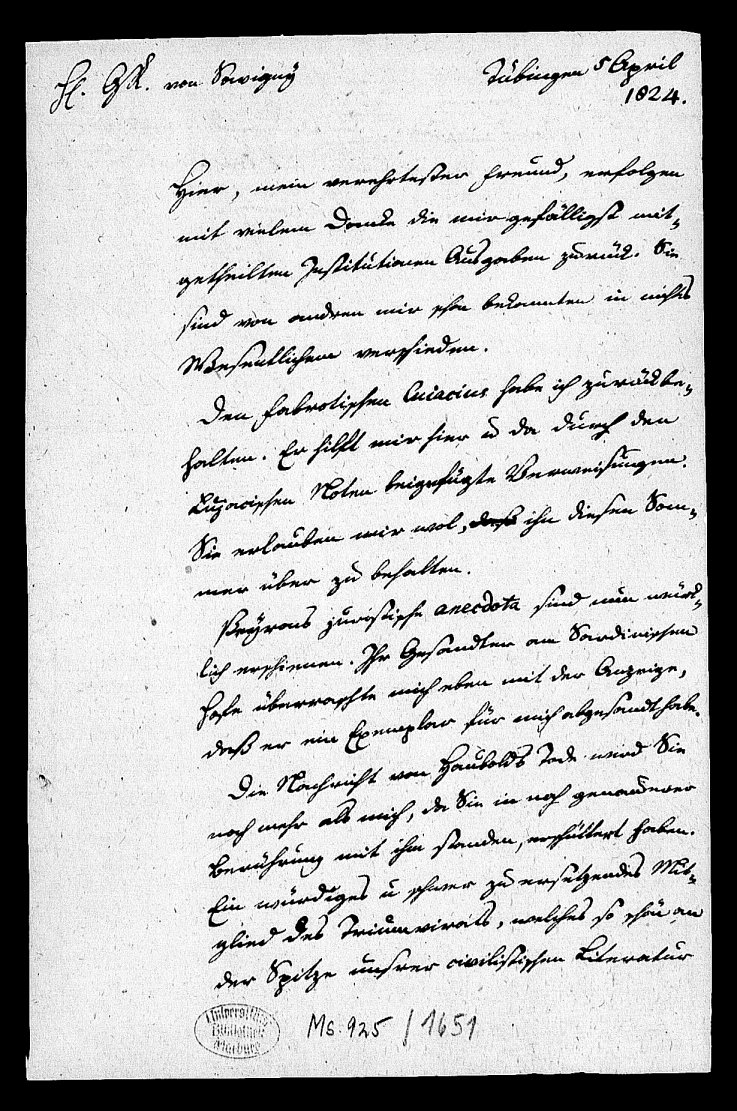 H. GR. von Savigny
Tübingen 5 April
1824.
Hier, mein verehrtester Freund, erfolgen
mit vielem Danke die mir gefälligst mit-
getheilten Institutionen Ausgaben zurück. Sie
sind von andren mir schon bekannten in nichts
Wesentlichem verschieden.
Den Fabrotischen Cuiacius habe ich zurückbe-
halten. Er hilft mir hier u da durch den
Cujacischen Noten beigefügte Verweisungen.
Sie erlauben mir wol, ihn diesen Som-
mer über zu behalten.
Peyrons juristische anecdota sind nun würk-
lich erschienen. Ihr Gesandter am Sardinischen
Hofe überraschte mich eben mit der Anzeige,
daß er ein Exemplar für mich abgesandt habe.
Die Nachricht von Haubolds Tode wird Sie
noch mehr als mich, da Sie in noch genauerer
Berührung mit ihm standen, erschüttert haben.
Ein würdiges u schwer zu ersetzendes Mit-
glied des Triumvirats, welches so schön an
der Spitze unsrer civilistischen Literatur
Universitäts
Bibliothek
Marburg
Ms. 925 / 1651